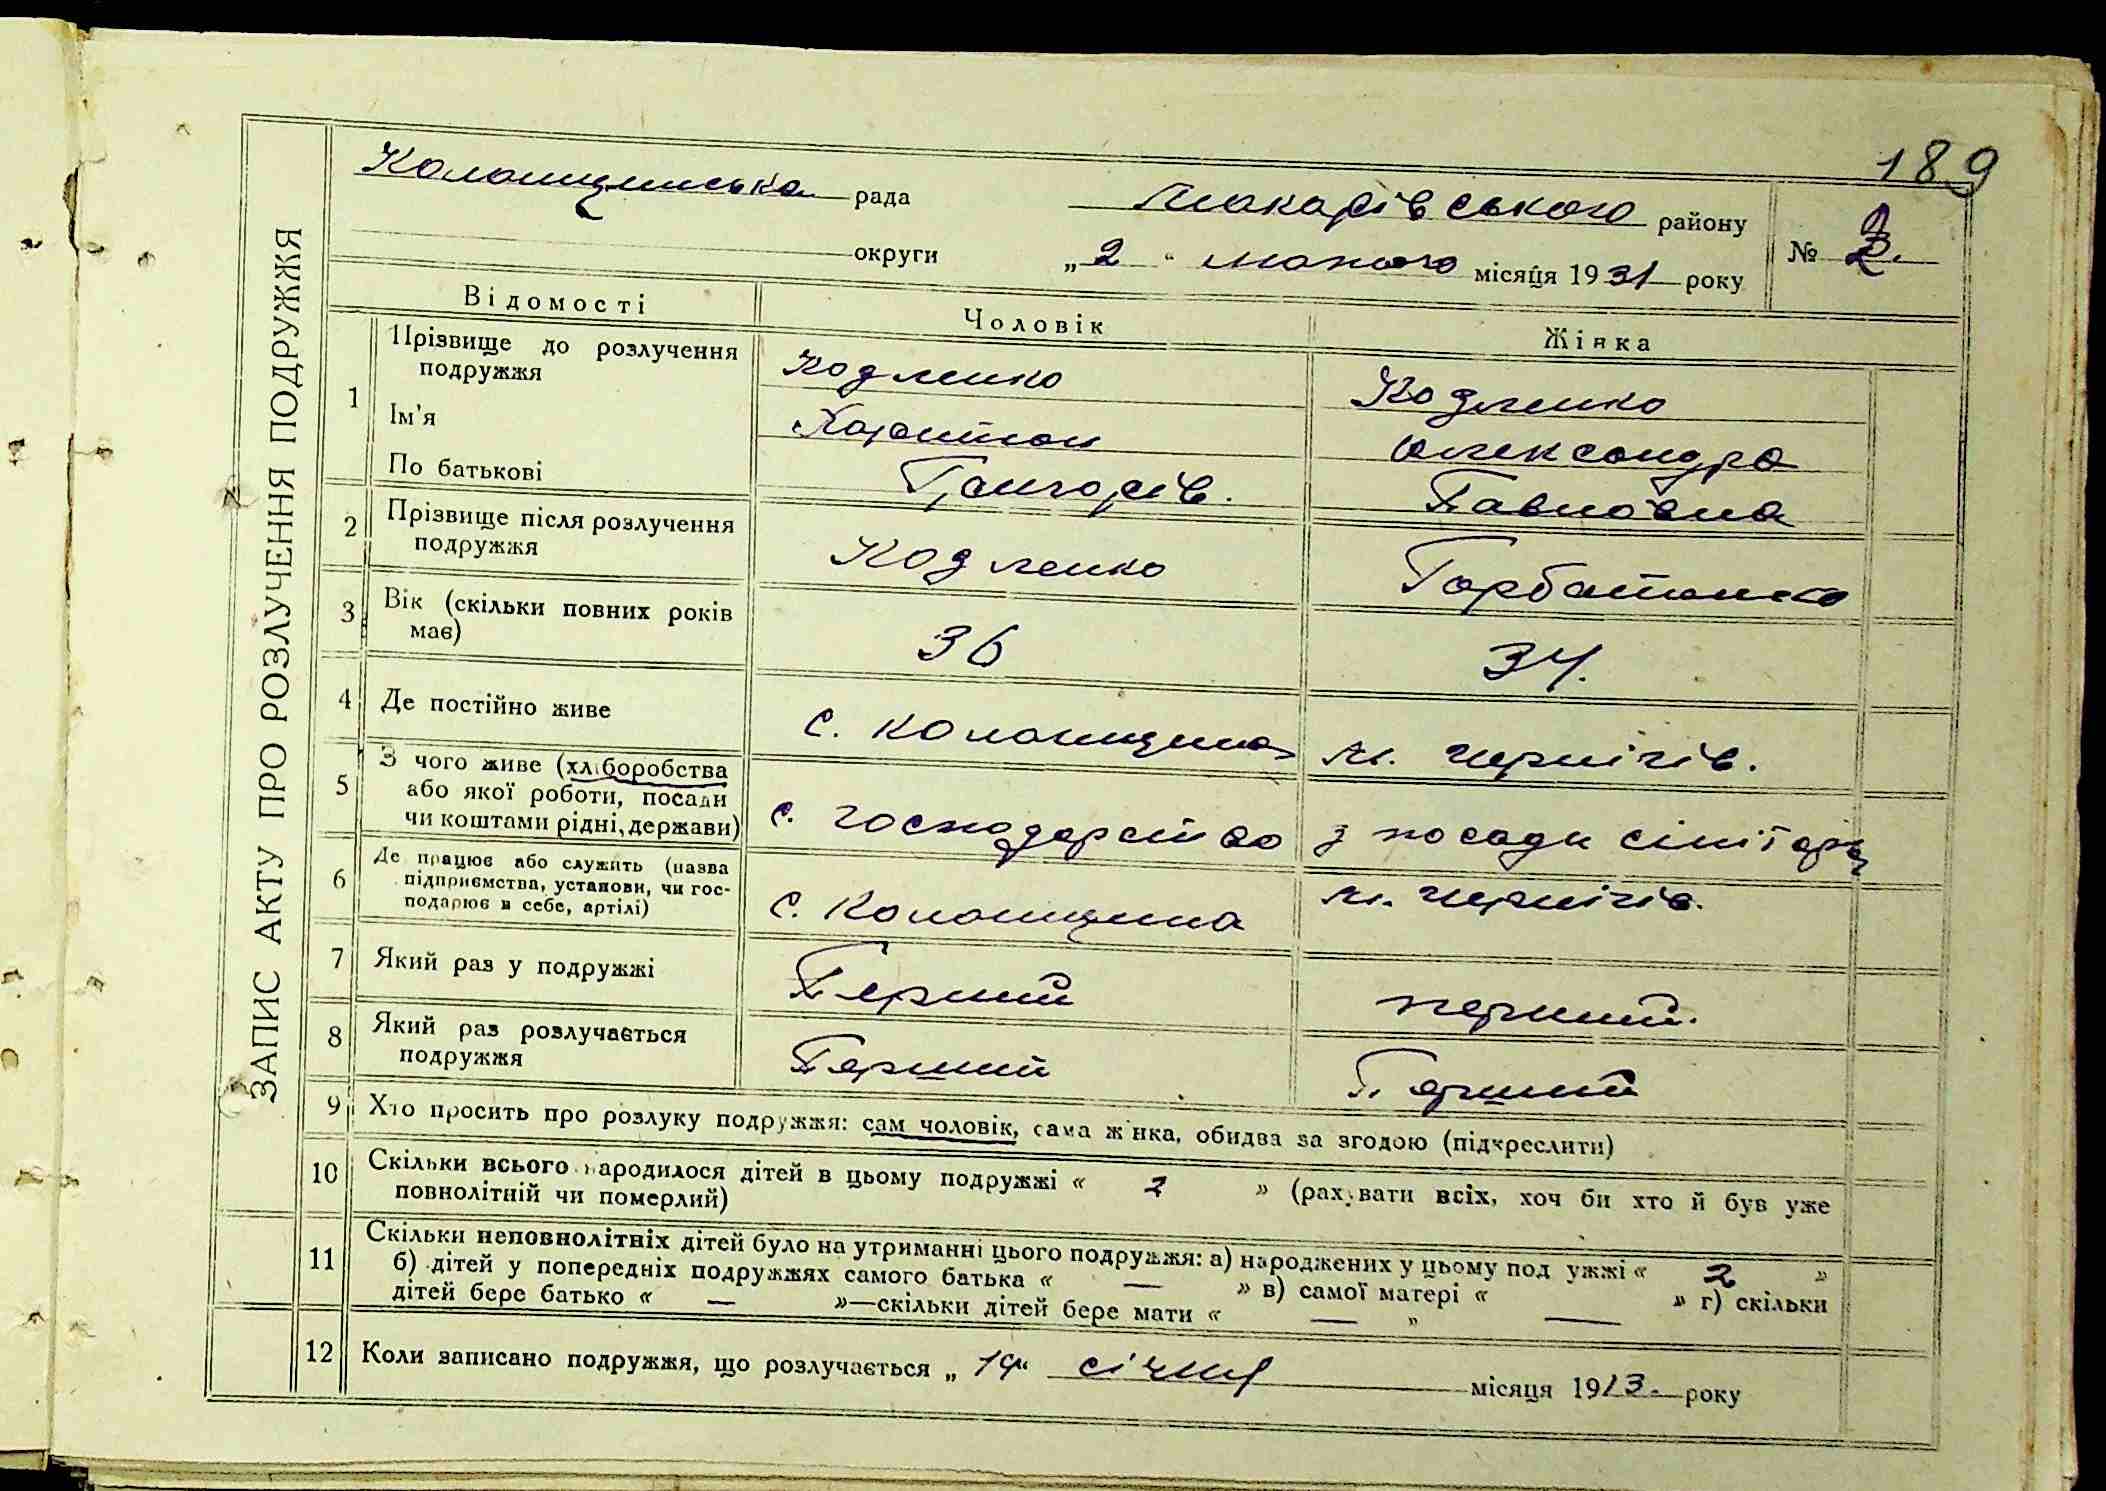 189
Колонщинська рада Макарівського району № 2.
округи „2" лютого місяця 1931 року
ЗАПИС АКТУ ПРО РОЗЛУЧЕННЯ ПОДРУЖЖЯ
Відомості Чоловік Жінка
1 Прізвище до розлучення подружжя Кодленко Кодленко
Ім'я Харитон Олександра
По батькові Григорів. Павловна
2 Прізвище після розлучення подружжя Кодленко Горбатенко
3 Вік (скільки повних років має) 36 34.
4 Де постійно живе с. Колонщина м. Чернігів.
5 З чого живе (хліборобства або якої роботи, посади чи коштами рідні, держави) с. господарство з посади
6 Де працює або служить (назва підприємства, установи, чи господарює в себе, артілі) с. Колонщина м. Чернігів.
7 Який раз у подружжі Перший перший.
8 Який раз розлучається подружжя Перший Перший
9 Хто просить про розлуку подружжя: сам чоловік, сама жінка, обидва за згодою (підкреслити)
10 Скільки всього народилося дітей в цьому подружжі « 2 » (рахувати всіх, хоч би хто й був уже
повнолітній чи померлий)
11 Скільки неповнолітніх дітей було на утриманні цього подружжя: а) народжених у цьому подружжі « 2 »
б) дітей у попередніх подружжях самого батька « — » в) самої матері « — » г) скільки
дітей бере батько « — »—скільки дітей бере мати « — »
12 Коли записано подружжя, що розлучається „ 19" січня місяця 1913. року